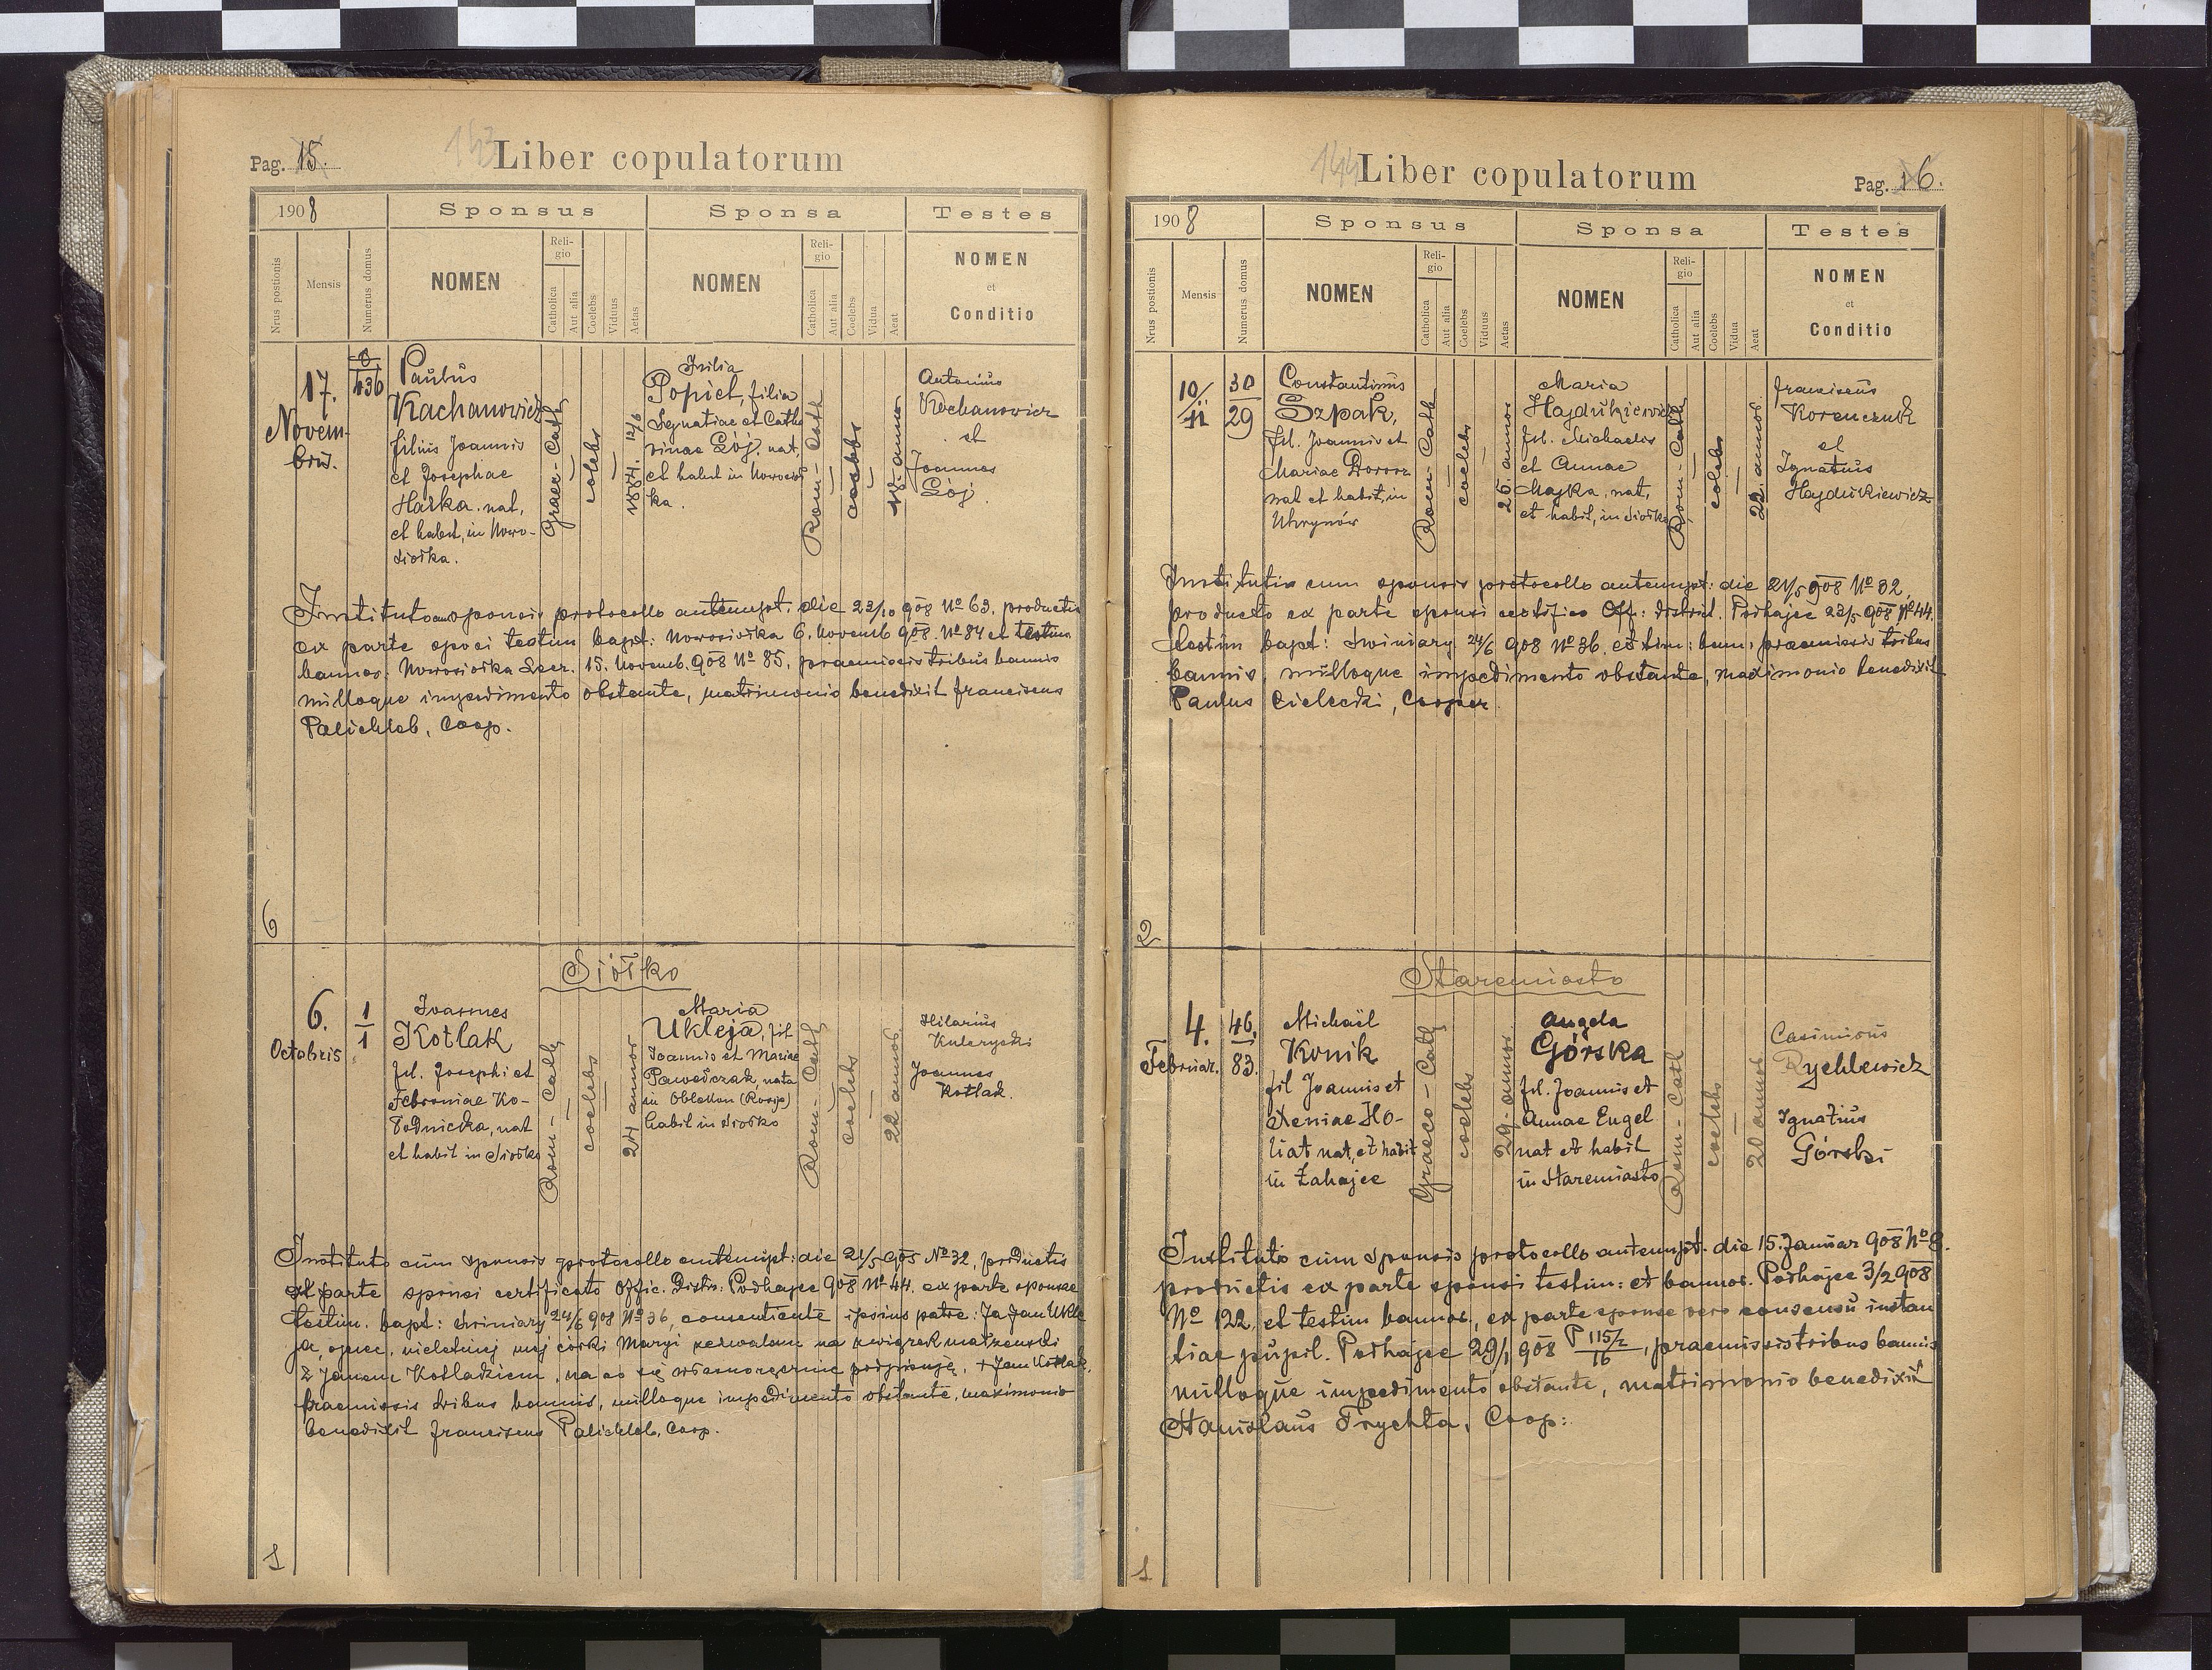 Pag. 15.
143
Liber copulatorum
1908
Sponsus
Sponsa
Testes
Nrus postionis
Mensis
Numerus domus
NOMEN
Religio
Catholica
Aut alia
Coelebs
Viduus
Aetas
NOMEN
Religio
Catholica
Aut alia
Coelebs
Vidua
Aeat
NOMEN
et
Conditio
17.
Novem-
bris.
436
Paulus
Kachanowicz
filius Joannis
et Josephae
Harka. nat,
et habit, in Nowo-
siołka.
Graec-Cath
coelebs
Julia
Popiel, filia
Ignatiae et Catha
rinae Gój, nat,
et habit in Nowosioł
ka.
Rom-Cath
coelebs
18. annos
Antonius
Kochanowicz
et
Joannes
Gój.
Instituto cum sponsis protocollo antenupt. die 23/10 908 No 63. productis
ex parte sponsi testim bapt: Nowosiołka 6. Novemb 908. No 84 et testim
bannor. Nowosiołka 15. Novemb. 908 No 85, praemissis tribus bannis
nulloque impedimento obstante, matrimonio benedixit Franciscus
Palichleb, Coop.
6
Siółko
6.
Octobris
1
1
Joannes
Kotlak
fil. Josephi et
Febroniae Ko-
łodnicka, nat
et habit in Siołko
Rom-Cath
coelebs
24 annos
Maria
Ukleja, fil
Joannis et Mariae
Pawełczak, nata
in (Rosya)
habit in Siołko
Rom-Cath
coelebs
22 annos
Hilarius
Kulczycki
Joannes
Kotlak.
Instituto cum sponsis protocollo antenupt: die 21/5 908 No 32, productis
ex parte sponsi certificato Offic. Distr: Podhajce 908 No 44. ex parte sponsae
testim. bapt: Swiniary 24/6 908 No 36, consentiente ipsius patre: Ja Jan Ukle
ja, ojciec, nieletniej mej córki Maryi zezwalam na związek małżeński
z Janem Kotlakiem, na co się własnoręcznie podpisuję, + Jan Kotlak,
praemissis tribus bannis, nulloque impedimento obstante, matrimonio
benedixit Franciscus Palichleb, Coop.
1
144
Liber copulatorum
Pag. 16.
1908
Sponsus
Sponsa
Testes
Nrus postionis
Mensis
Numerus domus
NOMEN
Religio
Catholica
Aut alia
Coelebs
Viduus
Aetas
NOMEN
Religio
Catholica
Aut alia
Coelebs
Vidua
Aeat
NOMEN
et
Conditio
10/
11
30
29
Constantinus
Szpak,
fil. Joannis et
Mariae
nat et habit, in
Uhrynów
Rom-Cath
coelebs
26 annos
Maria
Hajdukiewicz
fil. Michaelis
et Annae
Majka, nat,
et habit, in Siołko
Rom-Cath
coelebs
22 annos
Franciscus
Korenczuk
et
Ignatius
Hajdukiewicz
Institutis cum sponsis protocollo antenupt: die 21/5 908 No 32,
producto ex parte sponsi certifico Off: district. Podhajce 23/5 908, No 44.
testim bapt: Swiniary 24/6 908 No 36. et praemissis tribus
bannis, nulloque impedimento obstante, matrimonio benedixit
Paulus Cielecki, Cooper.
2
Staremiasto
4.
Februar.
46.
83.
Michaël
Konik
fil Joannis et
Xeniae Ho-
liat nat, et habit
in Zahajce
Graeco-Cath
coelebs
29 annos
Angela
Górska
fil. Joannis et
Annae Engel
nat et habit
in Staremiasto
Rom-Cath
coelebs
20 annos
Casimirus
Rychlewicz
Ignatius
Górski
Instituto cum sponsis protocollo antenupt. die 15. Januar 908 No 8.
productis ex parte sponsi testim: et bannor. Podhajce 3/2 908
No 122, et testim bannor, ex parte sponse vero consensu instan
tiae pupil. Podhajce 29/1 908 P 115/2
16, praemissis tribus bannis
nulloque impedimento obstante, matrimonio benedixit
Stanislaus Trychta, Coop:
1